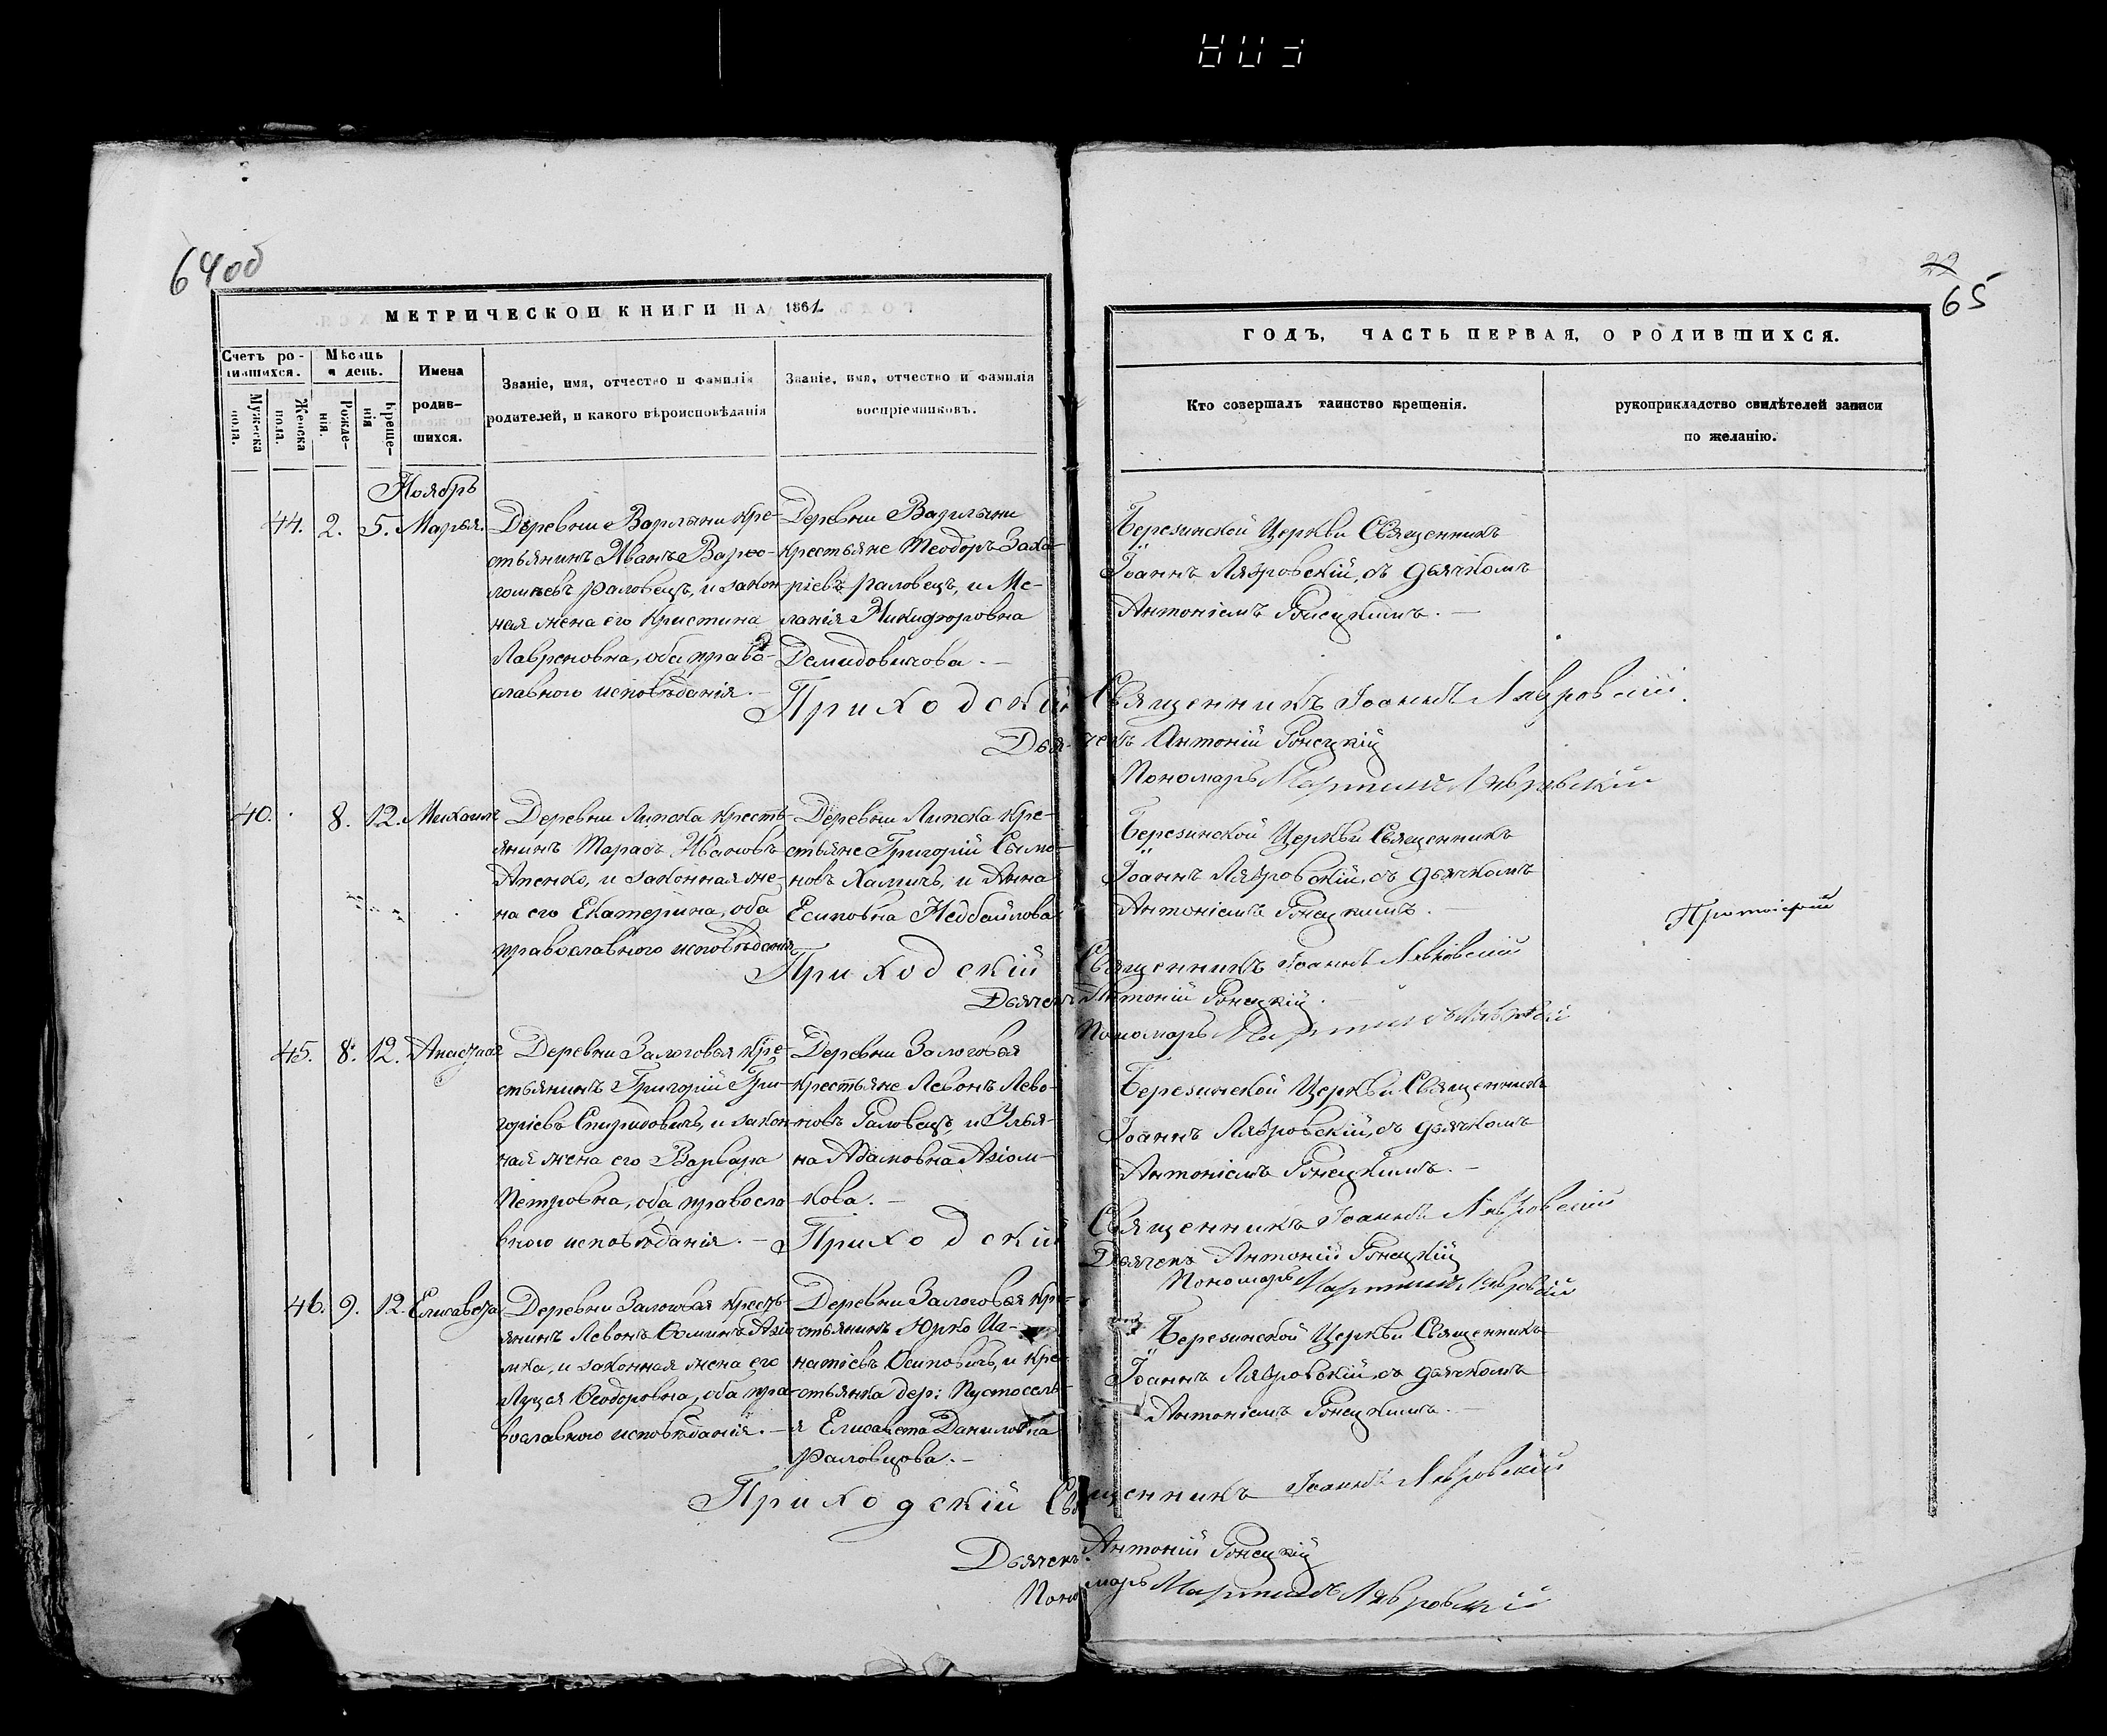 64 об
22
65
МЕТРИЧЕСКОЙ КНИГИ НА 1861.
ГОДЪ, ЧАСТЬ ПЕРВАЯ, О РОДИВШИХСЯ.
Счетъ ро-
дившихся.
Мужеска
пола.
Женска
пола.
Мѣсяць
и день.
Рожде-
нія.
Креще-
нія
Имена
родив-
шихся.
Званіе, имя, отчество и фамилія
родителей, и какого вѣроисповѣданія
Званіе, имя, отчество и фамилія
воспріемниковъ.
Кто совершалъ таинство крещенія.
рукоприкладство свидѣтелей записи
по желанію.
Ноябрь
44. 2. 5. Марья.
Деревни кре-
стьянинъ Иванъ Варѳо-
ломѣевъ Раловецъ, и закон-
ная жена его Кристина
Лавреновна, оба право-
славного исповѣданія.
Деревни
крестьяне Теодоръ Заха-
ріевъ Раловецъ, и Ме-
ланія Никифоровна
Демидовичова.
Березинской Церкви Священникъ
Іоаннъ Лявровскій, съ дьячкомъ
Антоніемъ
Приходскій Священникъ Іоаннъ Лявровскій.
Дьячекъ Антоній
Пономарь Мартинъ Лявровскій
40. 8. 12. Михаилъ
Деревни Липска кресть-
янинъ Тарасъ Ивановъ
Апенко, и законная же-
на его Екатерина, оба
православного исповѣданія
Деревни Липска кре-
стьяне Григорій Сымо-
новъ Хамичъ, и Анна
Есиповна Недбайлова
Березинской Церкви Священникъ
Іоаннъ Лявровскій, съ дьячкомъ
Антоніемъ
Протоіерей
Приходскій Священникъ Іоаннъ Лявровскій
Дьячекъ Антоній
Пономарь Мартинъ Лявровскій
45. 8. 12. Анастасія
Деревни Залоговая кре-
стьянинъ Григорій Гри-
горіевъ Спиридовичъ, и закон-
ная жена его Варвара
Петровна, оба правосла-
вного исповѣданія.
Деревни Залоговая
крестьяне Левонъ Лево-
новъ Раловецъ, и Улья-
на Адамовна Азіом-
кова.
Березинской Церкви Священникъ
Іоаннъ Лявровскій, съ дьячкомъ
Антоніемъ
Приходскій Священникъ Іоаннъ Лявровскій
Дьячекъ Антоній
Пономарь Мартинъ Лявровскій
46. 9. 12. Елисавета
Деревни Залоговая кресть-
янинъ Левонъ Ѳоминъ Азіо-
мка, и законная жена его
Луцея Ѳеодоровна, оба пра-
вославного исповѣданія.
Деревни Залоговая кре-
стьянинъ Юрко Иг-
натіевъ Осиповичъ, и кре-
стьянка дер: Пустосель-
я Елисавета Даниловна
Раловцова.
Березинской Церкви Священникъ
Іоаннъ Лявровскій, съ дьячкомъ
Антоніемъ
Приходскій Священникъ Іоаннъ Лявровскій
Дьячекъ Антоній
Пономарь Мартинъ Лявровскій